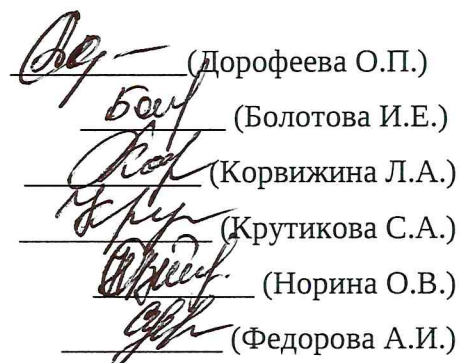 (Дорофеева О.П.)
Бол (Болотова И.Е.)
(Корвижина Л.А.)
(Крутикова С.А.)
(Норина О.В.)
(Федорова А.И.)